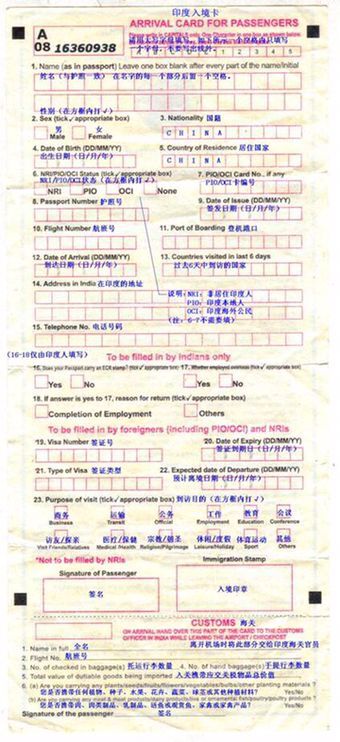 印度入境卡
ARRIVAL CARD FOR PASSENGERS
A
08 16360938
1. Name (as in passport) Leave one box blank after every part of the name/initial
姓名（与护照一致） 在名字的每一个部分后留一个空格。
性别（在方框内打√）
2. Sex (tick√appropriate box) 3. Nationality 国籍
男 女 CHINA
Male Female
4. Date of Birth (DD/MM/YY) 5. Country of Residence 居住国家
出生日期（日/月/年） CHINA
6. NRI/PIO/OCI Status (tick√appropriate box) 7. PIO/OCI Card No., if any
NRI/PIO/OCI状态（在方框内打√） PIO/OCI卡编号
NRI PIO OCI None
8. Passport Number 护照号 9. Date of Issue (DD/MM/YY)
签发日期（日/月/年）
10. Flight Number 航班号 11. Port of Boarding 登机路口
12. Date of Arrival (DD/MM/YY) 13. Countries visited in last 6 days
到达日期（日/月/年） 过去6天中到访的国家
14. Address in India 在印度的地址
说明：NRI：非居住印度人
PIO：印度本地人
OCI：印度海外公民
（注：6-7不能要填）
15. Telephone No. 电话号码
(16-18仅由印度人填写) To be filled in by Indians only
16. Does your Passport carry an ECR stamp? (tick√appropriate box) 17. Whether employed overseas (tick√appropriate box)
Yes No Yes No
18. If answer is yes to 17, reason for return (tick√appropriate box)
Completion of Employment Others
To be filled in by foreigners (including PIO/OCI) and NRIs
19. Visa Number 签证号 20. Date of Expiry (DD/MM/YY)
签证到期日（日/月/年）
21. Type of Visa 签证类型 22. Expected date of Departure (DD/MM/YY)
预计离境日期（日/月/年）
23. Purpose of visit (tick√appropriate box) 到访目的（在方框内打√）
商务 运输 公务 工作 教育 会议
Business Transit Official Employment Education Conference
访友/探亲 医疗/健康 宗教/朝圣 休闲/度假 体育运动 其他
Visit Friends/Relatives Medical/Health Religion/Pilgrimage Leisure/Holiday Sport Others
*Not to be filled by NRIs
Signature of Passenger Immigration Stamp
签名 入境印章
CUSTOMS 海关
ON ARRIVAL HAND OVER THIS PART OF THE CARD TO THE CUSTOMS
OFFICER IN INDIA WHILE LEAVING THE AIRPORT / CHECKPOST
离开机场时将此部分交给印度海关官员
1. Name in full 全名
2. Flight No. 航班号
3. No. of checked in baggage(s) 托运行李数量 4. No. of hand baggage(s) 手提行李数量
5. Total value of dutiable goods being imported 入关携带应交关税物品总价值
6. (a) Are you carrying any plants/seeds/fruits/flowers/vegetables/bulbs/other planting materials? Yes/No
您是否携带任何植物、种子、水果、花卉、蔬菜、球茎或其他种植材料？
(b) Are you carrying any meat & meat products/dairy products/live or ornamental fish/poultry/poultry products? Yes/No
您是否携带肉、肉类制品、乳制品、活鱼或观赏鱼、家禽或禽产品？
Signature of the passenger 签名